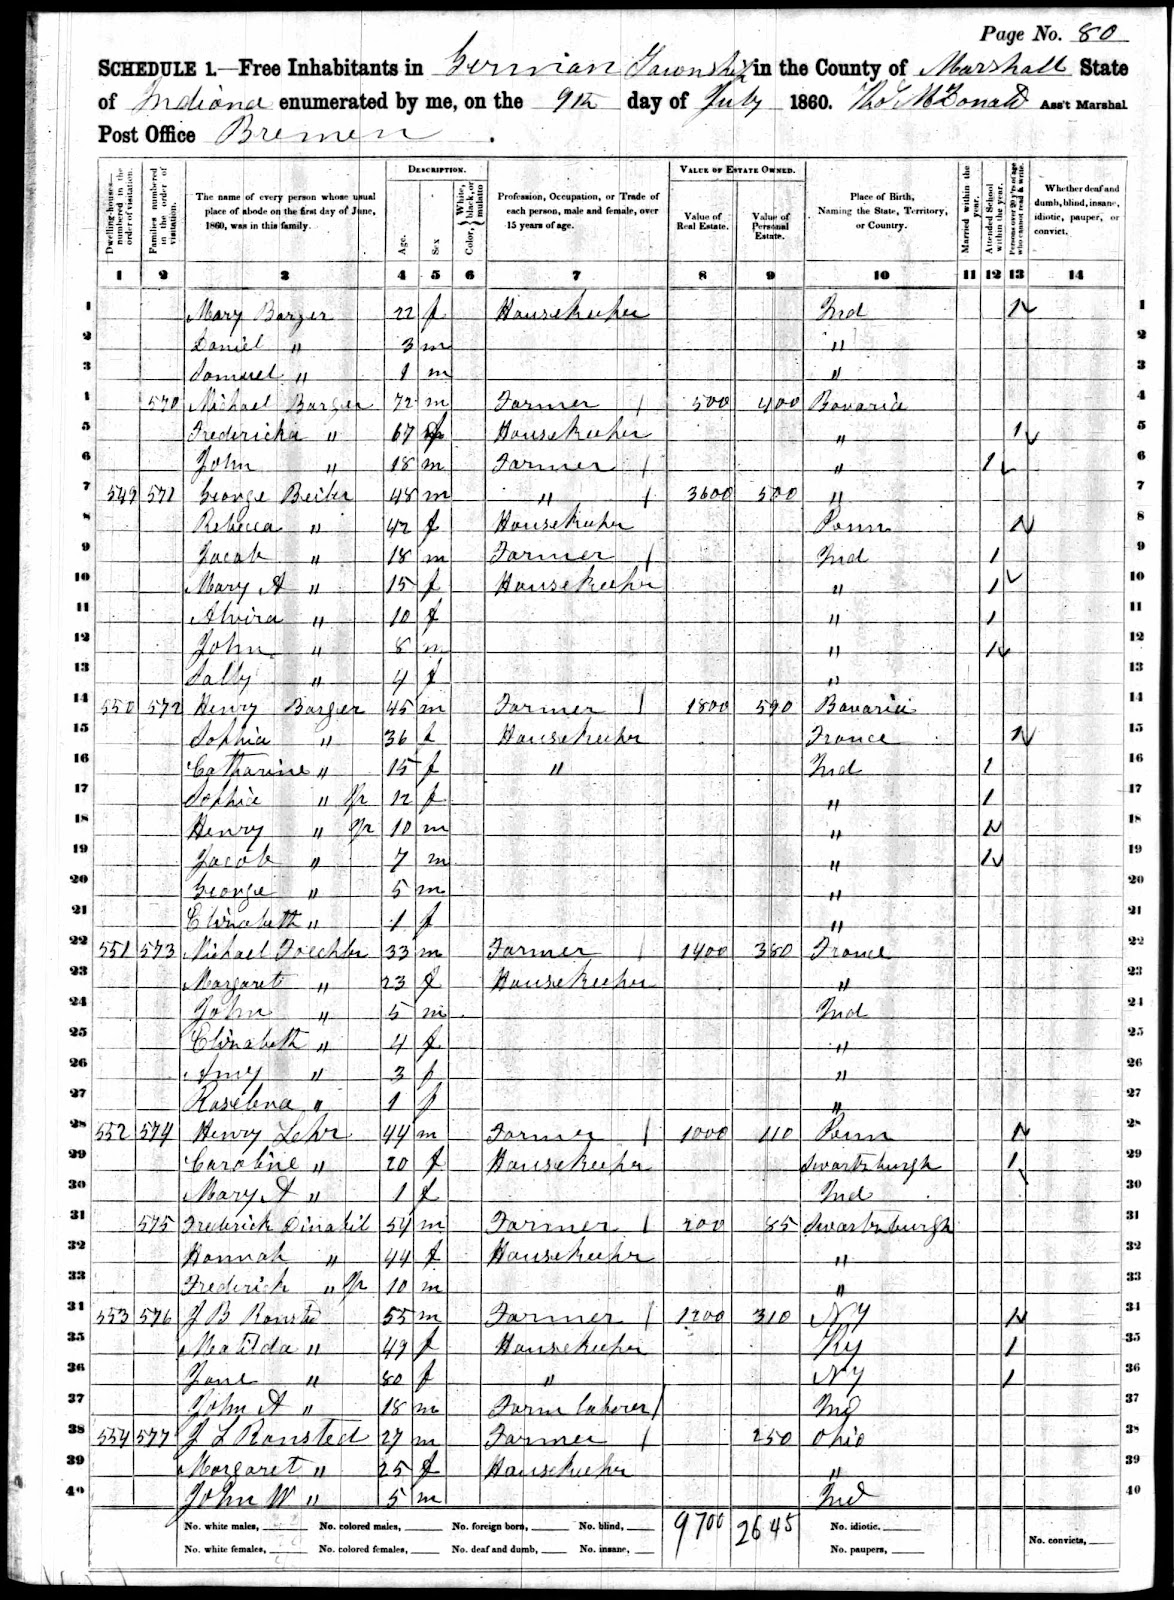 Page No. 80
SCHEDULE 1.—Free Inhabitants in German Township in the County of Marshall State
of Indiana enumerated by me, on the 9th day of July 1860. Ass't Marshal
Post Office Bremen.
Dwelling-houses—numbered in the order of visitation.
Families numbered in the order of visitation.
The name of every person whose usual place of abode on the first day of June, 1860, was in this family.
DESCRIPTION.
Age.
Sex
Color, { White, black, or mulatto
Profession, Occupation, or Trade of each person, male and female, over 15 years of age.
VALUE OF ESTATE OWNED.
Value of Real Estate.
Value of Personal Estate.
Place of Birth, Naming the State, Territory, or Country.
Married within the year.
Attended School within the year.
Persons over 20 y'rs of age who cannot read & write.
Whether deaf and dumb, blind, insane, idiotic, pauper, or convict.
1 2 3 4 5 6 7 8 9 10 11 12 13 14
1 Mary Barger 22 f Housekeeper Ind 1 1
2 Daniel " 3 m " 2
3 Samuel " 1 m " 3
4 570 Michael Barger 72 m Farmer 1 500 400 Bavaria 4
5 Fredericka " 67 f Housekeeper " 1 5
6 John " 18 m Farmer 1 " 1 6
7 549 571 George Beiler 48 m " 1 3600 500 " 7
8 Rebecca " 42 f Housekeeper Penn 1 8
9 Jacob " 18 m Farmer 1 Ind 1 9
10 Mary A " 15 f Housekeeper " 1 10
11 Alvira " 10 f " 1 11
12 John " 8 m " 1 12
13 Sally " 4 f " 13
14 550 572 Henry Barger 45 m Farmer 1 1800 590 Bavaria 14
15 Sophia " 36 f Housekeeper France 1 15
16 Catharine " 15 f " Ind 1 16
17 Sophia " Jr 12 f " 1 17
18 Henry " Jr 10 m " 1 18
19 Jacob " 7 m " 1 19
20 George " 5 m " 20
21 Elizabeth " 1 f " 21
22 551 573 Michael 33 m Farmer 1 1400 380 France 22
23 Margaret " 23 f Housekeeper " 23
24 John " 5 m Ind 24
25 Elizabeth " 4 f " 25
26 Amy " 3 f " 26
27 Rosebena " 1 f " 27
28 552 574 Henry Lehr 44 m Farmer 1 1000 110 Penn 1 28
29 Caroline " 20 f Housekeeper Swartzburgh 1 29
30 Mary A " 1 f Ind 30
31 575 Frederick Dinabil 54 m Farmer 1 200 85 Swartzburgh 31
32 Hannah " 44 f Housekeeper " 32
33 Frederick " Jr 10 m " 33
34 553 576 J B 55 m Farmer 1 1200 310 NY 1 34
35 Matilda " 49 f Housekeeper Ky 1 35
36 Jane " 80 f " NY 1 36
37 John A " 18 m Farm laborer 1 Ind 37
38 554 577 J L Ransted 27 m Farmer 1 250 Ohio 38
39 Margaret " 25 f Housekeeper " 39
40 John W " 5 m Ind 40
No. white males, No. colored males, No. foreign born, No. blind, 9700 2645 No. idiotic.
No. white females, No. colored females, No. deaf and dumb, No. insane, No. paupers, No. convicts,